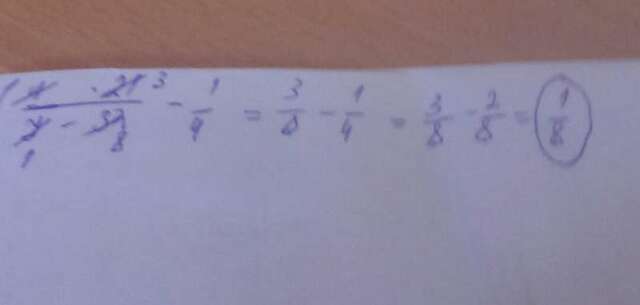 1 4 · 21 3 / 7 - 32 1 8 - 1/4 = 3/8 - 1/4 = 3/8 - 2/8 = 1/8